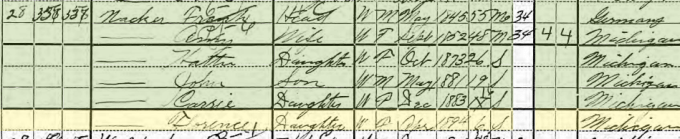 28 358 358 Wacker Frank Head W M May 1845 55 M 34 Germany
Wife W F Sept 1852 48 M 34 4 4 Michigan
Hattie Daughter W F Oct 1873 26 S Michigan
John Son W M May 1881 19 S Michigan
Carrie Daughter W F Dec 1883 16 S Michigan
Florence Daughter W F 1894 6 S Michigan